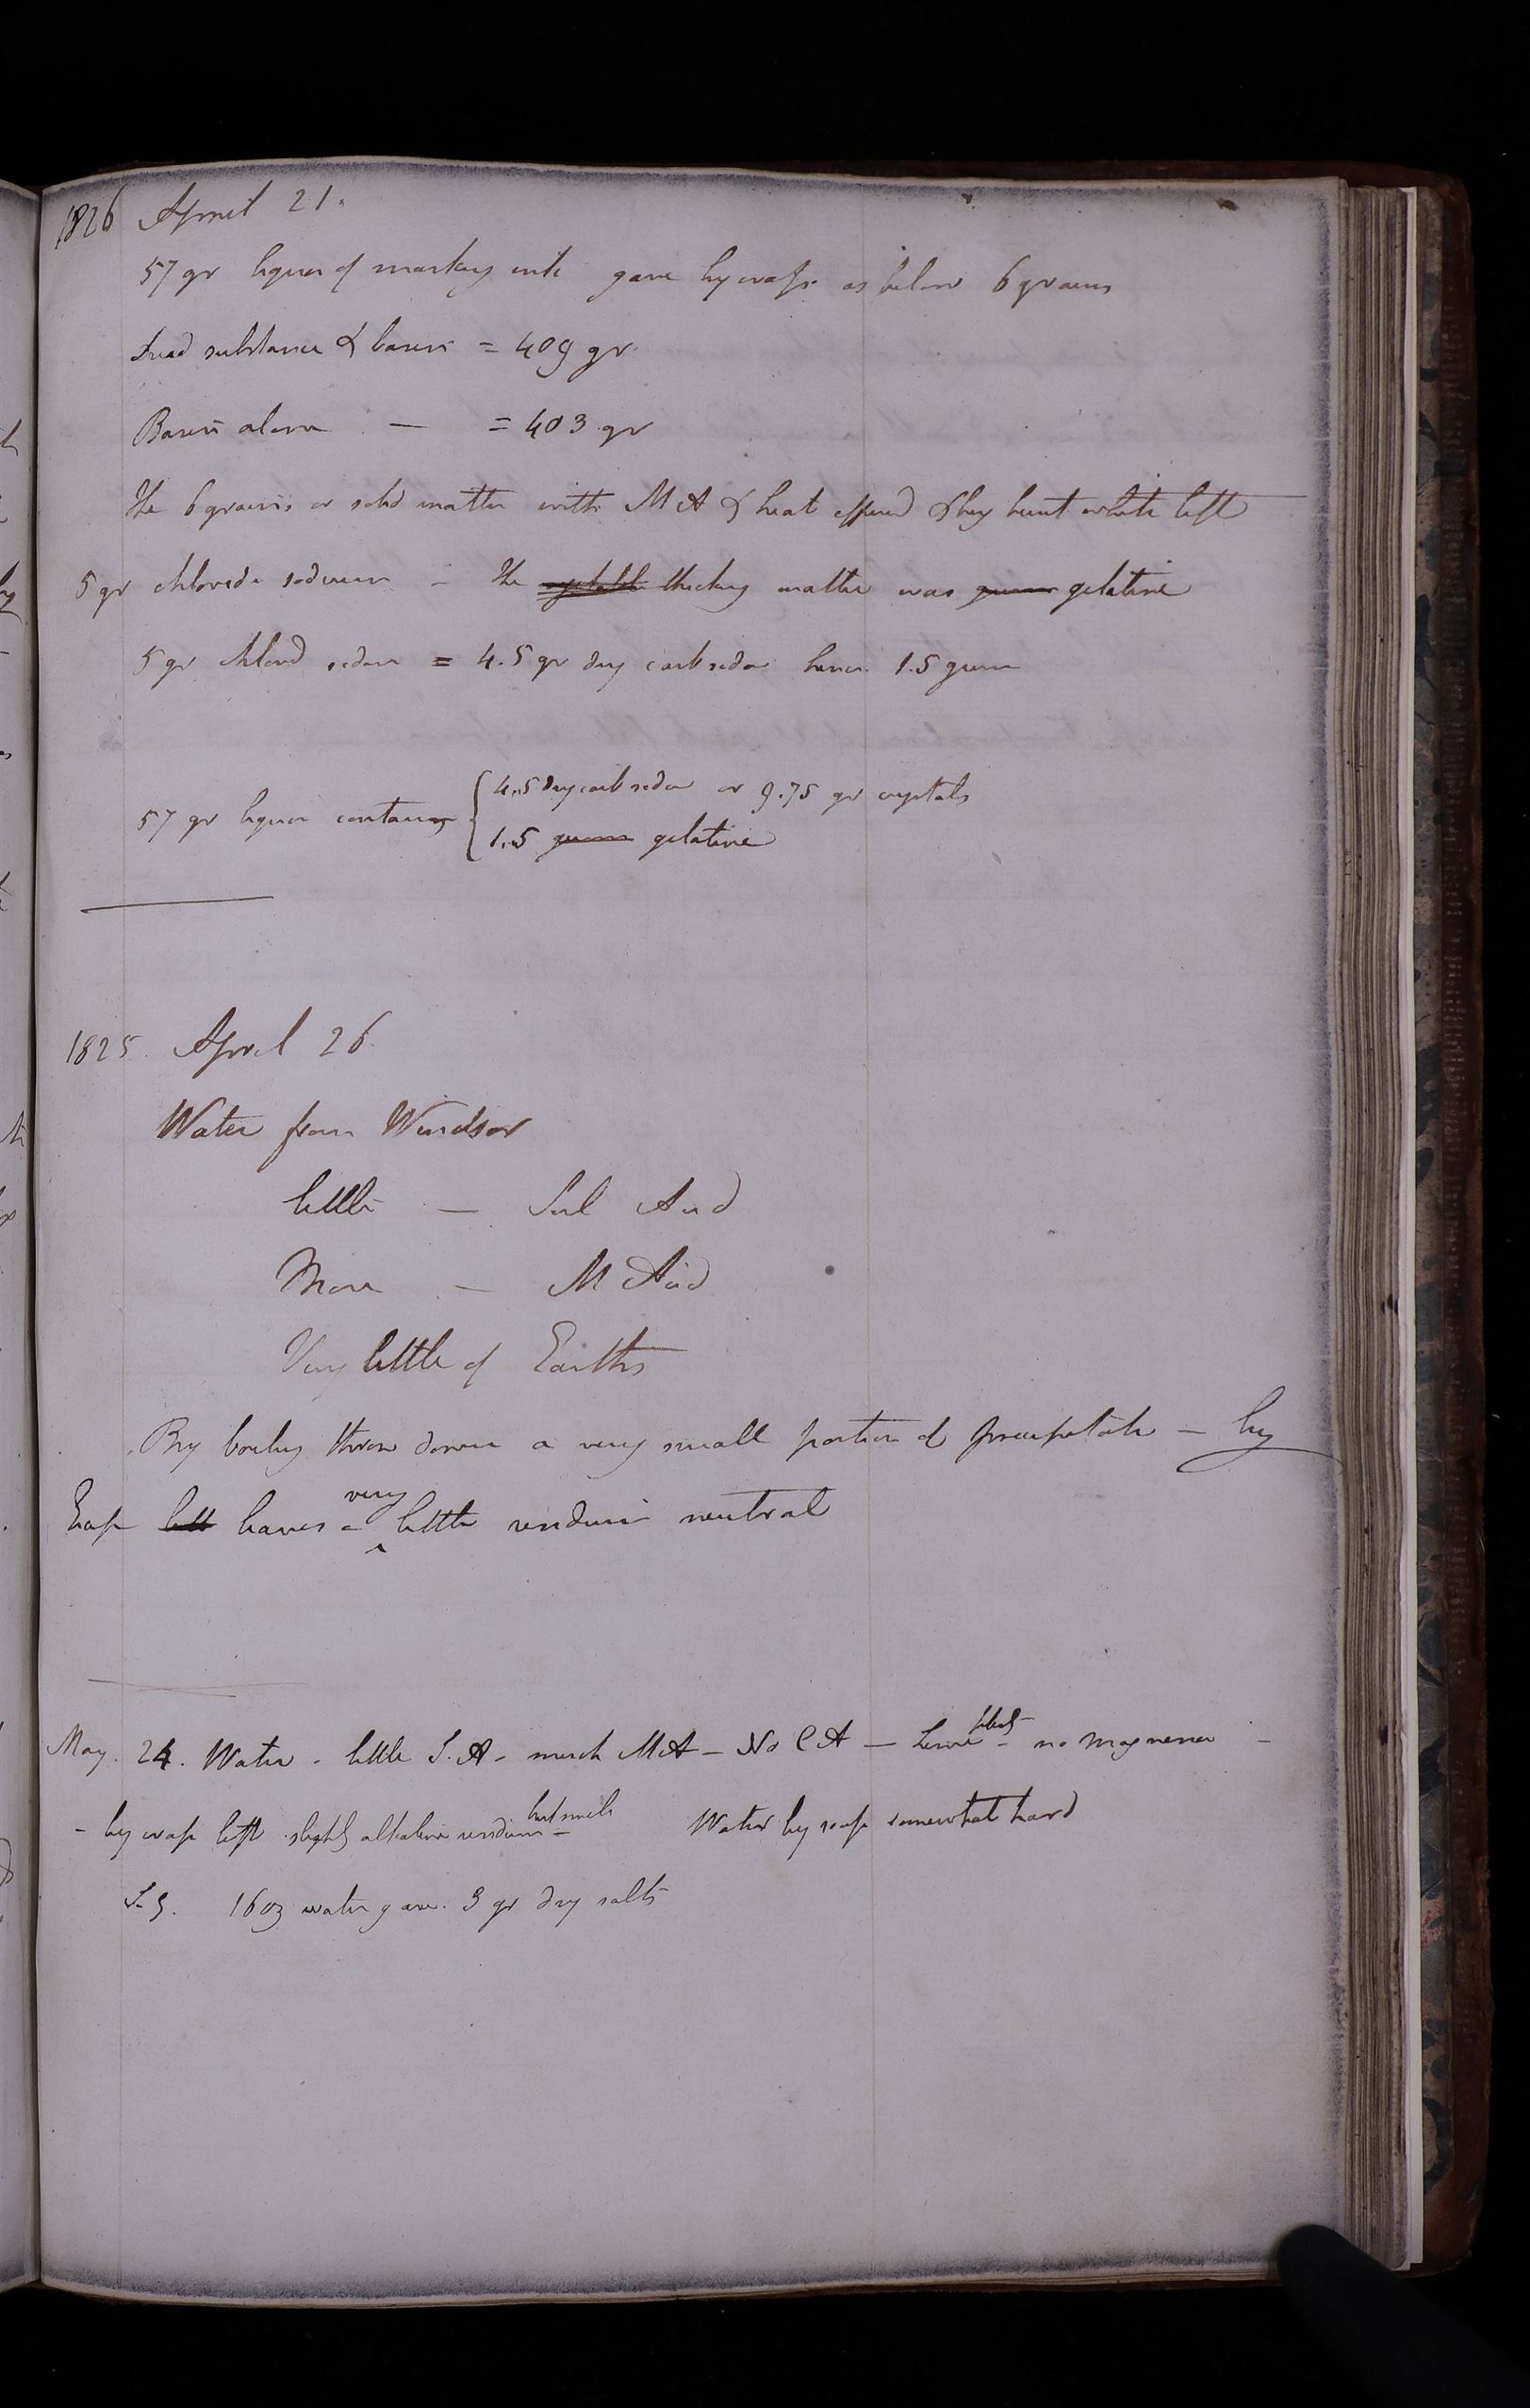 1826 April 21.
57 gr liquor of marking ink gave by evap. as below 6 grains
dried substance & basin = 409 gr
Basin alone — = 403 gr
The 6 grains or solid matter with MA & heat efferd & by burnt white left
5 gr chloride sodium - The thicking matter was gum gelatine
5 gr chlorid sodium = 4.5 gr dry carb soda hence 1.5 gum
57 gr liquor contains { 4.5 dry carb soda or 9.75 gr crystals
1.5 gum gelatine
1825. April 26
Water from Windsor
little — Sul Acid
More — M Acid
Very little of Earths
By boiling throws down a very small portion of precipitate — by
Evap left leaves a very little residuum neutral
May. 24. Water - little S.A - much MA — No CA — Lime - no Magnesia -
- by evap left slightly alkaline residuum - but much Water by soap somewhat hard
S.G. 16 oz water gave. 3 gr dry salts